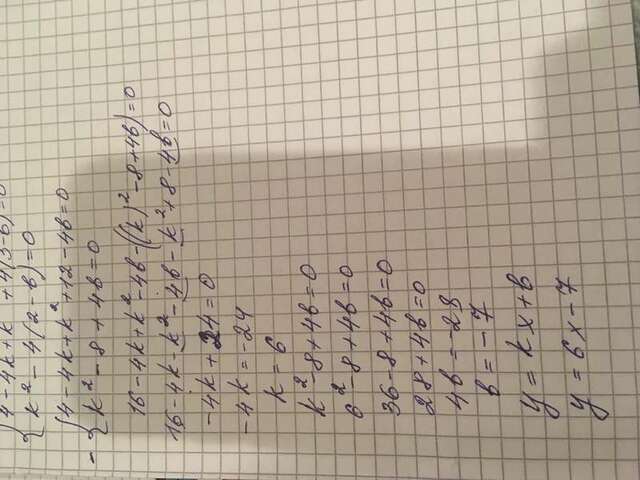 4-4k+k² + 4(3-b)=0
k²-4(2-b)=0
4-4k+k²+12-4b=0
- k²-8+4b=0
16-4k+k²-4b-((k)²-8+4b)=0
16-4k-k²-4b-k²+8-4b=0
-4k+24=0
-4k=-24
k=6
k²-8+4b=0
6²-8+4b=0
36-8+4b=0
28+4b=0
4b=-28
b=-7
y=kx+b
y=6x-7